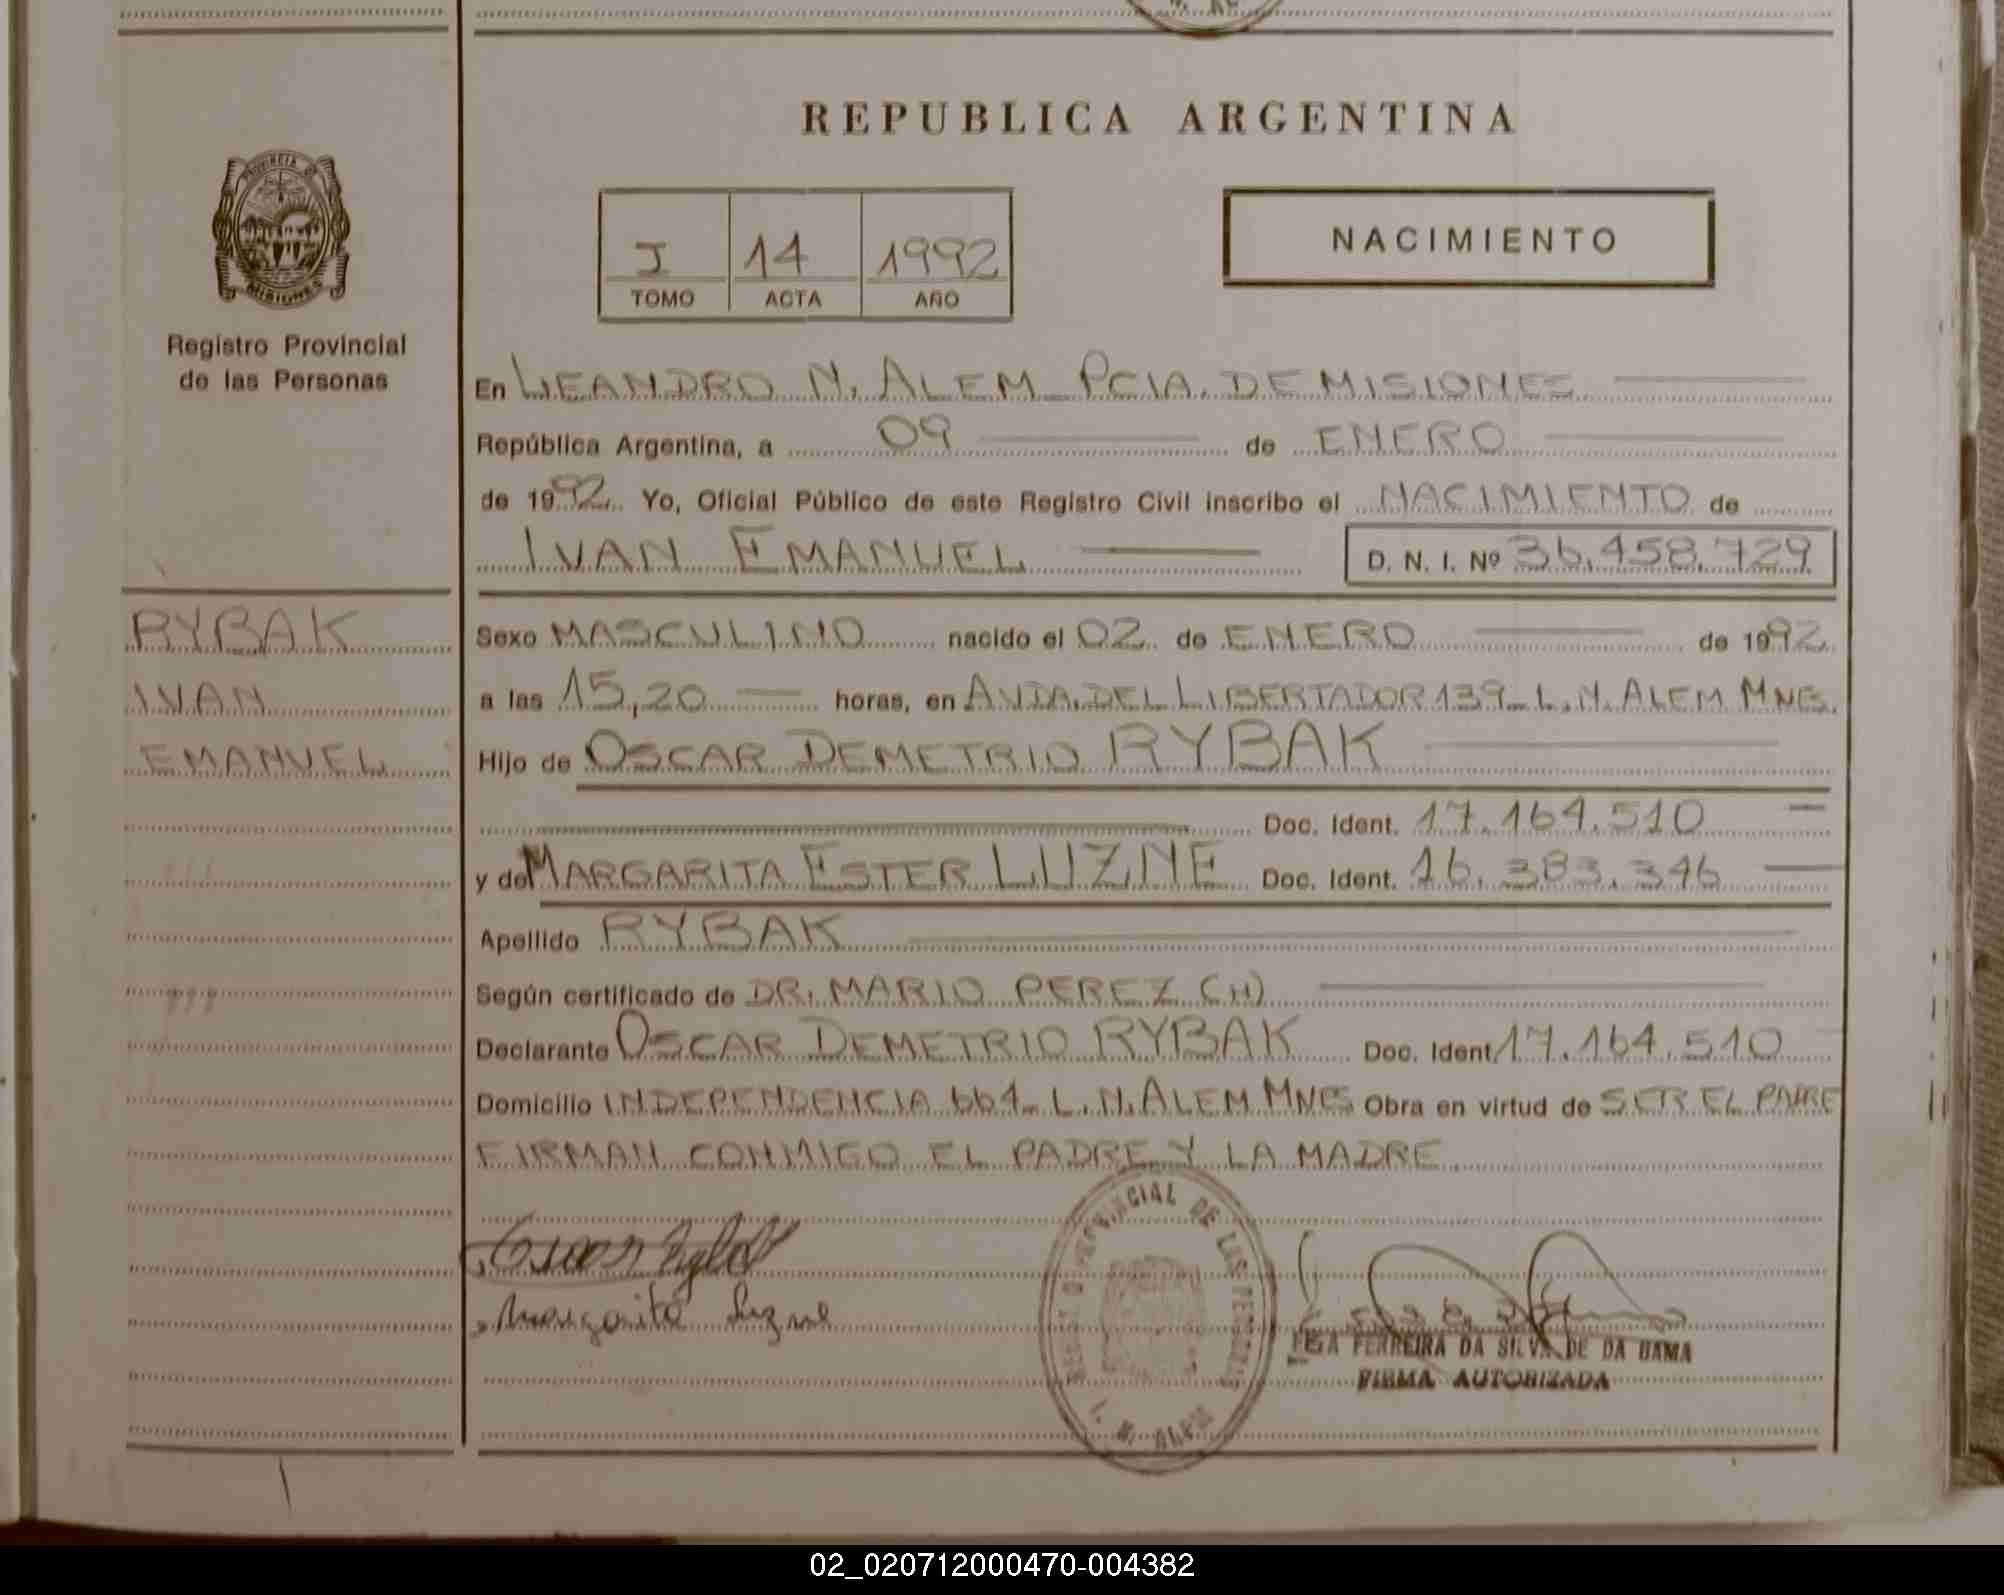 REPUBLICA ARGENTINA
PROVINCIA DE
MISIONES
Registro Provincial
de las Personas
I 14 1992
TOMO ACTA AÑO
NACIMIENTO
En LEANDRO N. ALEM PCIA. DE MISIONES
República Argentina, a 09 de ENERO
de 1992 Yo, Oficial Público de este Registro Civil inscribo el NACIMIENTO de
IVAN EMANUEL D. N. I. Nº 36.458.729
RYBAK
IVAN
EMANUEL
Sexo MASCULINO nacido el 02 de ENERO de 1992
a las 15,20 horas, en AVDA. DEL LIBERTADOR 139 - L. N. ALEM MNES.
Hijo de OSCAR DEMETRIO RYBAK
Doc. Ident. 17.164.510
y de MARGARITA ESTER LUZNE Doc. Ident. 16.383.346
Apellido RYBAK
Según certificado de DR. MARIO PEREZ (H)
Declarante OSCAR DEMETRIO RYBAK Doc. Ident. 17.164.510
Domicilio INDEPENDENCIA 664 - L. N. ALEM MNES Obra en virtud de SER EL PADRE
FIRMAN CONMIGO EL PADRE Y LA MADRE
Margarita Luzne
REGISTRO PROVINCIAL DE LAS PERSONAS
N. ALEM
FERREIRA DA SILVA DE DA GAMA
FIRMA AUTORIZADA
02_020712000470-004382